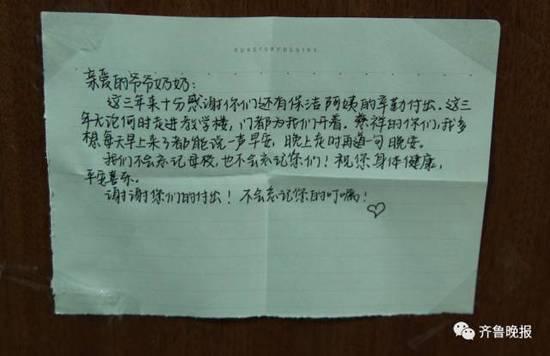 亲爱的爷爷奶奶：
这三年来十分感谢你们还有保洁阿姨的辛勤付出。这三
年无论何时走进教学楼，门都为我们开着。慈祥的你们，我多
想每天早上来了都能说一声早安，晚上走时再道一句晚安。
我们不会忘记母校，也不会忘记您们！祝您身体健康，
平安喜乐。
谢谢您们的付出！不会忘记您的叮嘱！
齐鲁晚报